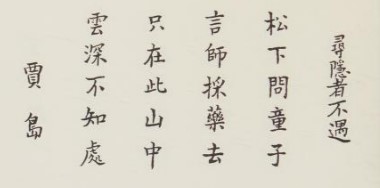 尋隱者不遇
松下問童子
言師採藥去
只在此山中
雲深不知處
賈島